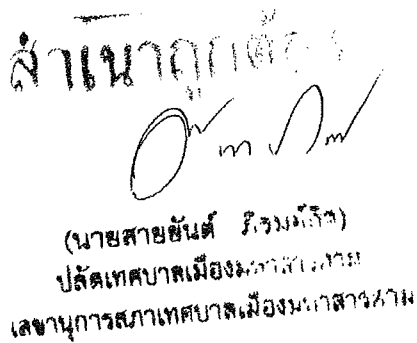 สำเนาถูกต้อง
(นายสายยันต์
ปลัดเทศบาลเมืองมหาสารคาม
เลขานุการสภาเทศบาลเมืองมหาสารคาม